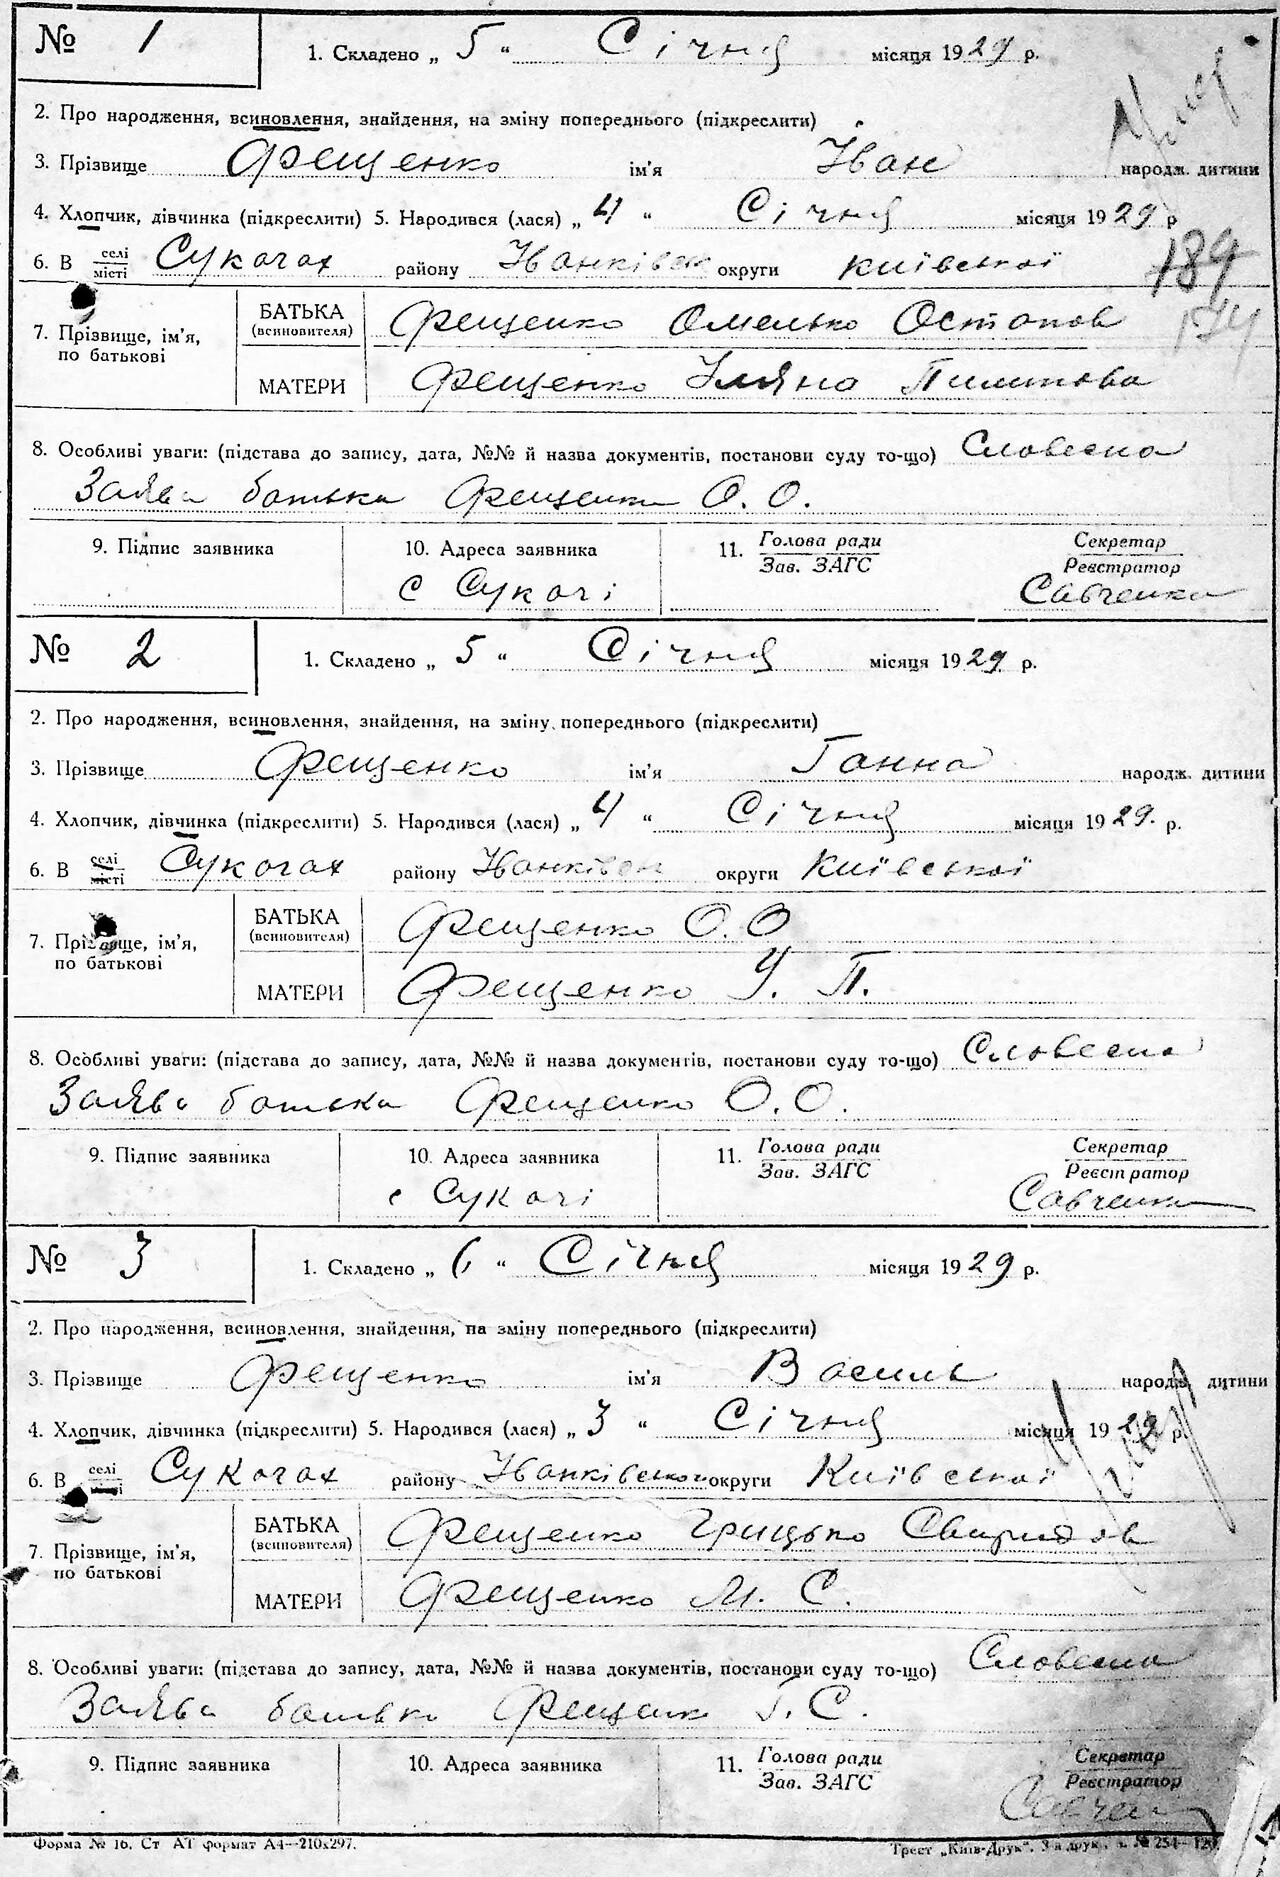 № 1 1. Складено „ 5 “ Січня місяця 1929 р.
2. Про народження, всиновлення, знайдення, на зміну попереднього (підкреслити)
3. Прізвище Фещенко ім'я Іван народж. дитини
4. Хлопчик, дівчинка (підкреслити) 5. Народився (лася) „ 4 “ Січня місяця 1929 р
6. В селі Сукачах району Іванківськ округи київської
місті
189
174
7. Прізвище, ім'я, по батькові
БАТЬКА (всиновителя) Фещенко Омелько Остапов
МАТЕРИ Фещенко Уляна Пилипова
8. Особливі уваги: (підстава до запису, дата, №№ й назва документів, постанови суду то-що) Словесна
Заява батька Фещенка О. О.
9. Підпис заявника 10. Адреса заявника 11. Голова ради Секретар
Зав. ЗАГС Реєстратор
с Сукачі Савченко
№ 2 1. Складено „ 5 “ Січня місяця 1929 р.
2. Про народження, всиновлення, знайдення, на зміну попереднього (підкреслити)
3. Прізвище Фещенко ім'я Ганна народж. дитини
4. Хлопчик, дівчинка (підкреслити) 5. Народився (лася) „ 4 “ Січня місяця 1929. р.
6. В селі Сукачах району Іванківськ округи Київської
місті
7. Прізвище, ім'я, по батькові
БАТЬКА (всиновителя) Фещенко О. О
МАТЕРИ Фещенко У. П.
8. Особливі уваги: (підстава до запису, дата, №№ й назва документів, постанови суду то-що) Словесна
Заява батька Фещенко О. О.
9. Підпис заявника 10. Адреса заявника 11. Голова ради Секретар
Зав. ЗАГС Реєстратор
с Сукачі Савченко
№ 3 1. Складено „ 6 “ Січня місяця 1929 р.
2. Про народження, всиновлення, знайдення, на зміну попереднього (підкреслити)
3. Прізвище Фещенко ім'я Василь народж. дитини
4. Хлопчик, дівчинка (підкреслити) 5. Народився (лася) „ 3 “ Січня місяця 1929 р.
6. В селі Сукачах району Іванківської округи Київської
місті
7. Прізвище, ім'я, по батькові
БАТЬКА (всиновителя) Фещенко Грицько Свиридов
МАТЕРИ Фещенко М. С.
8. Особливі уваги: (підстава до запису, дата, №№ й назва документів, постанови суду то-що) Словесна
Заява батька Фещенк Г. С.
9. Підпис заявника 10. Адреса заявника 11. Голова ради Секретар
Зав. ЗАГС Реєстратор
Савчен
Форма № 16. Ст АТ формат А4—210х297. Трест „Київ-Друк“, 3-я друк., з. № 254—120